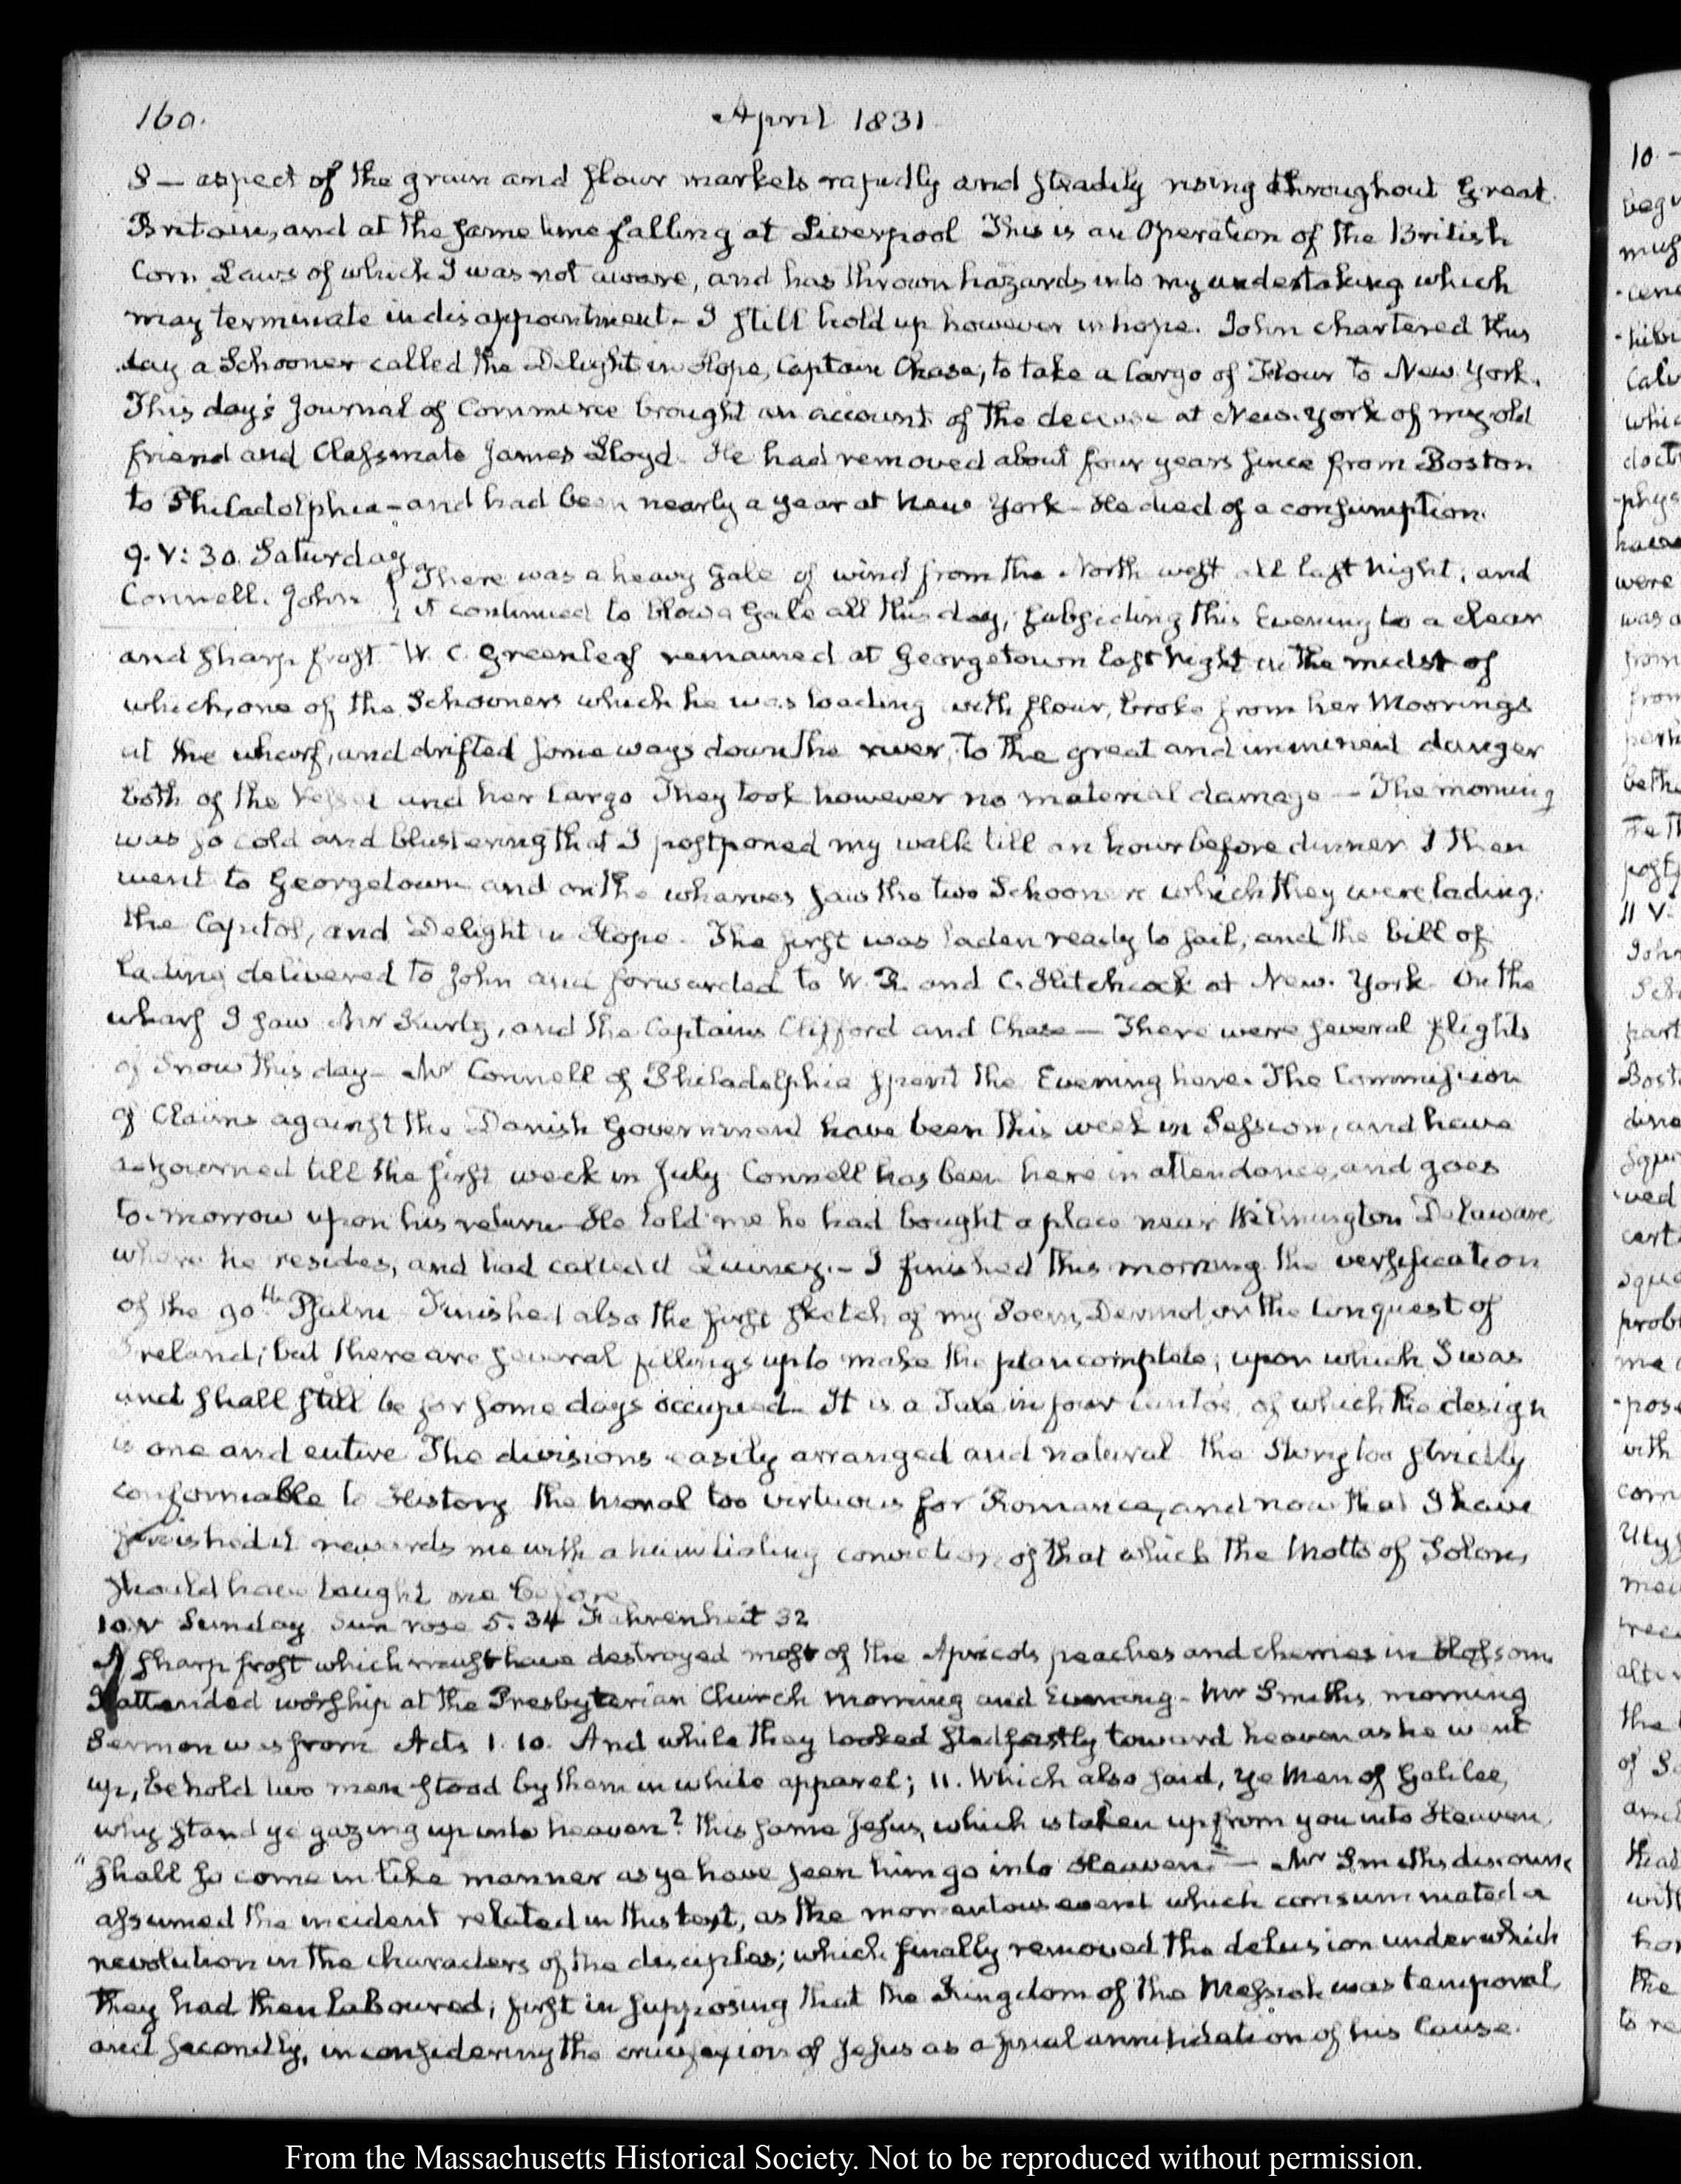 160.
April 1831
8 — aspect of the grain and flour markets rapidly and steadily rising throughout Great
Britain, and at the same time falling at Liverpool This is an Operation of the British
Corn Laws of which I was not aware, and has thrown hazards into my undertaking which
may terminate in disappointment. I still hold up however in hope. John chartered this
day a Schooner called the Delight in Hope, Captain Chase, to take a Cargo of Flour to New York.
This day's Journal of Commerce brought an account of the decease at New. York of my old
friend and Classmate James Lloyd. He had removed about four years since from Boston
to Philadelphia - and had been nearly a year at New York - He died of a consumption.
9. V: 30. Saturday
Connell. John
There was a heavy Gale of wind from the North west all last night, and
it continued to blow a Gale all this day, subsiding this Evening to a clear
and sharp frost. W. C. Greenleaf remained at Georgetown last night in the midst of
which, one of the Schooners which he was loading with flour, broke from her Moorings
at the wharf, and drifted some ways down the river, to the great and imminent danger
both of the Vessel and her Cargo They took however no material damage — The morning
was so cold and blustering that I postponed my walk till an hour before dinner I then
went to Georgetown and on the wharves saw the two Schooners which they were lading.
the Capitol, and Delight in Hope. The first was laden ready to sail, and the bill of
lading delivered to John and forwarded to W. R. and C. Hitchcock at New. York. On the
wharf I saw Mr Kurtz, and the Captains Clifford and Chase — There were several flights
of Snow this day - Mr Connell of Philadelphia spent the Evening here. The Commission
of Claims against the Danish Government have been this week in Session, and have
adjourned till the first week in July Connell has been here in attendance, and goes
to-morrow upon his return He told me he had bought a place near Wilmington Delaware
where he resides, and had called it Quincy. - I finished this morning the versification
of the 90th Psalm Finished also the first sketch of my Poem, Dermot, or the Conquest of
Ireland; but there are several fillings up to make the plan complete; upon which I was
and shall still be for some days occupied. It is a Tale in four Cantos, of which the design
is one and entire The divisions easily arranged and natural the Story too strictly
conformable to History the moral too virtuous for Romance, and now that I have
finished it rewards me with a humiliating conviction of that which the Motto of Solon,
should have taught me before
10. V Sunday Sun rose 5. 34 Fahrenheit 32
A sharp frost which must have destroyed most of the Apricots peaches and cherries in blossom
I attended worship at the Presbyterian Church morning and Evening - Mr Smiths morning
Sermon was from Acts 1. 10. And while they looked stedfastly toward heaven as he went
up, behold two men stood by them in white apparel; 11. Which also said, Ye Men of Galilee,
why stand ye gazing up into heaven? this same Jesus, which is taken up from you into Heaven,
"shall so come in like manner as ye have seen him go into Heaven." — Mr Smiths discourse
assumed the incident related in this text, as the momentous event which consummated a
revolution in the characters of the disciples; which finally removed the delusion under which
they had then laboured; first in supposing that the Kingdom of the Messiah was temporal
and secondly, in considering the crucifixion of Jesus as a final annihilation of his Cause.
From the Massachusetts Historical Society. Not to be reproduced without permission.